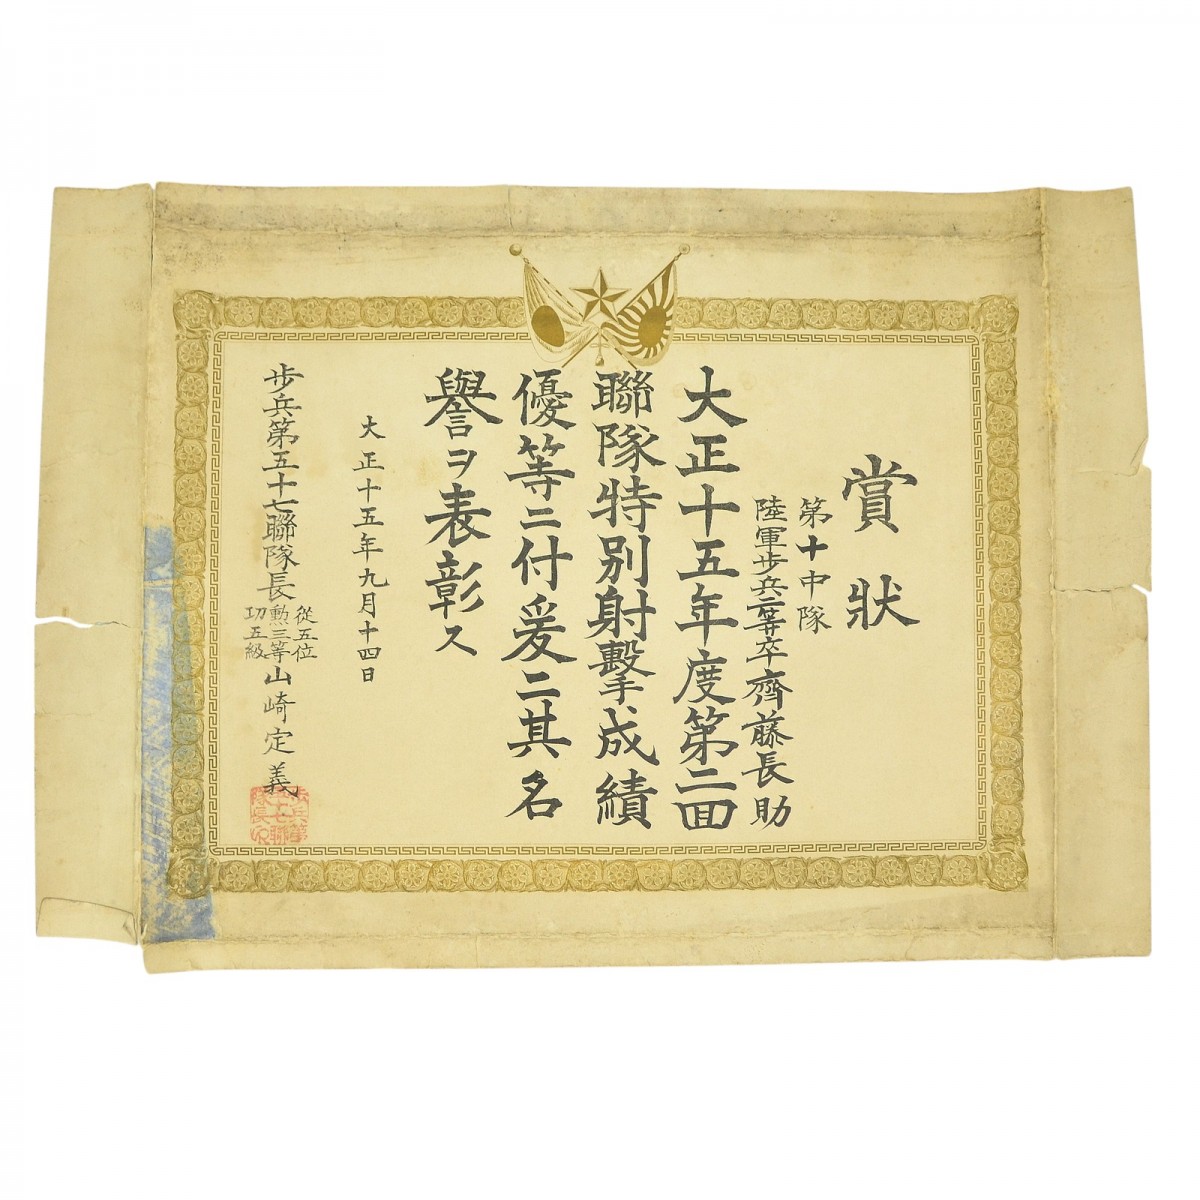 賞状
第十中隊
陸軍歩兵二等卒齊藤長助
大正十五年度第二回
聯隊特別射擊手成績
優等ニ付爰ニ其名
譽ヲ表彰ス
大正十五年九月十四日
歩兵第五十七聯隊長
從五位
勲三等
功五級
山崎定義
歩兵第
五十七聯
隊長印